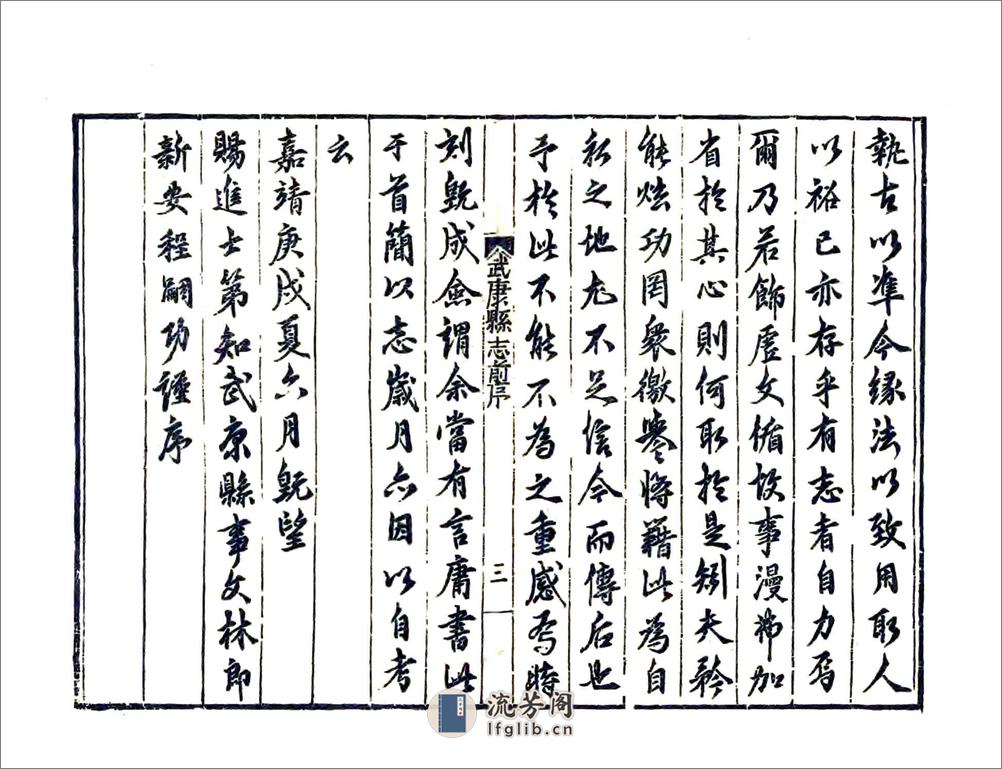 執古以準今緣法以致用取人
以裕已亦存乎有志者自力焉
爾乃若飾虛文循故事漫弗加
省於其心則何取於是矧夫矜
能炫功罔衆徼譽將籍此為自
私之地尤不足信今而傳后也
予於此不能不為之重感焉時
武康縣志前序
三
刻既成僉謂余當有言庸書此
于首簡以志歲月亦因以自考
云
嘉靖庚戌夏六月既望
賜進士第知武康縣事文林郎
新安程嗣功謹序
流芳阁
lfglib.cn